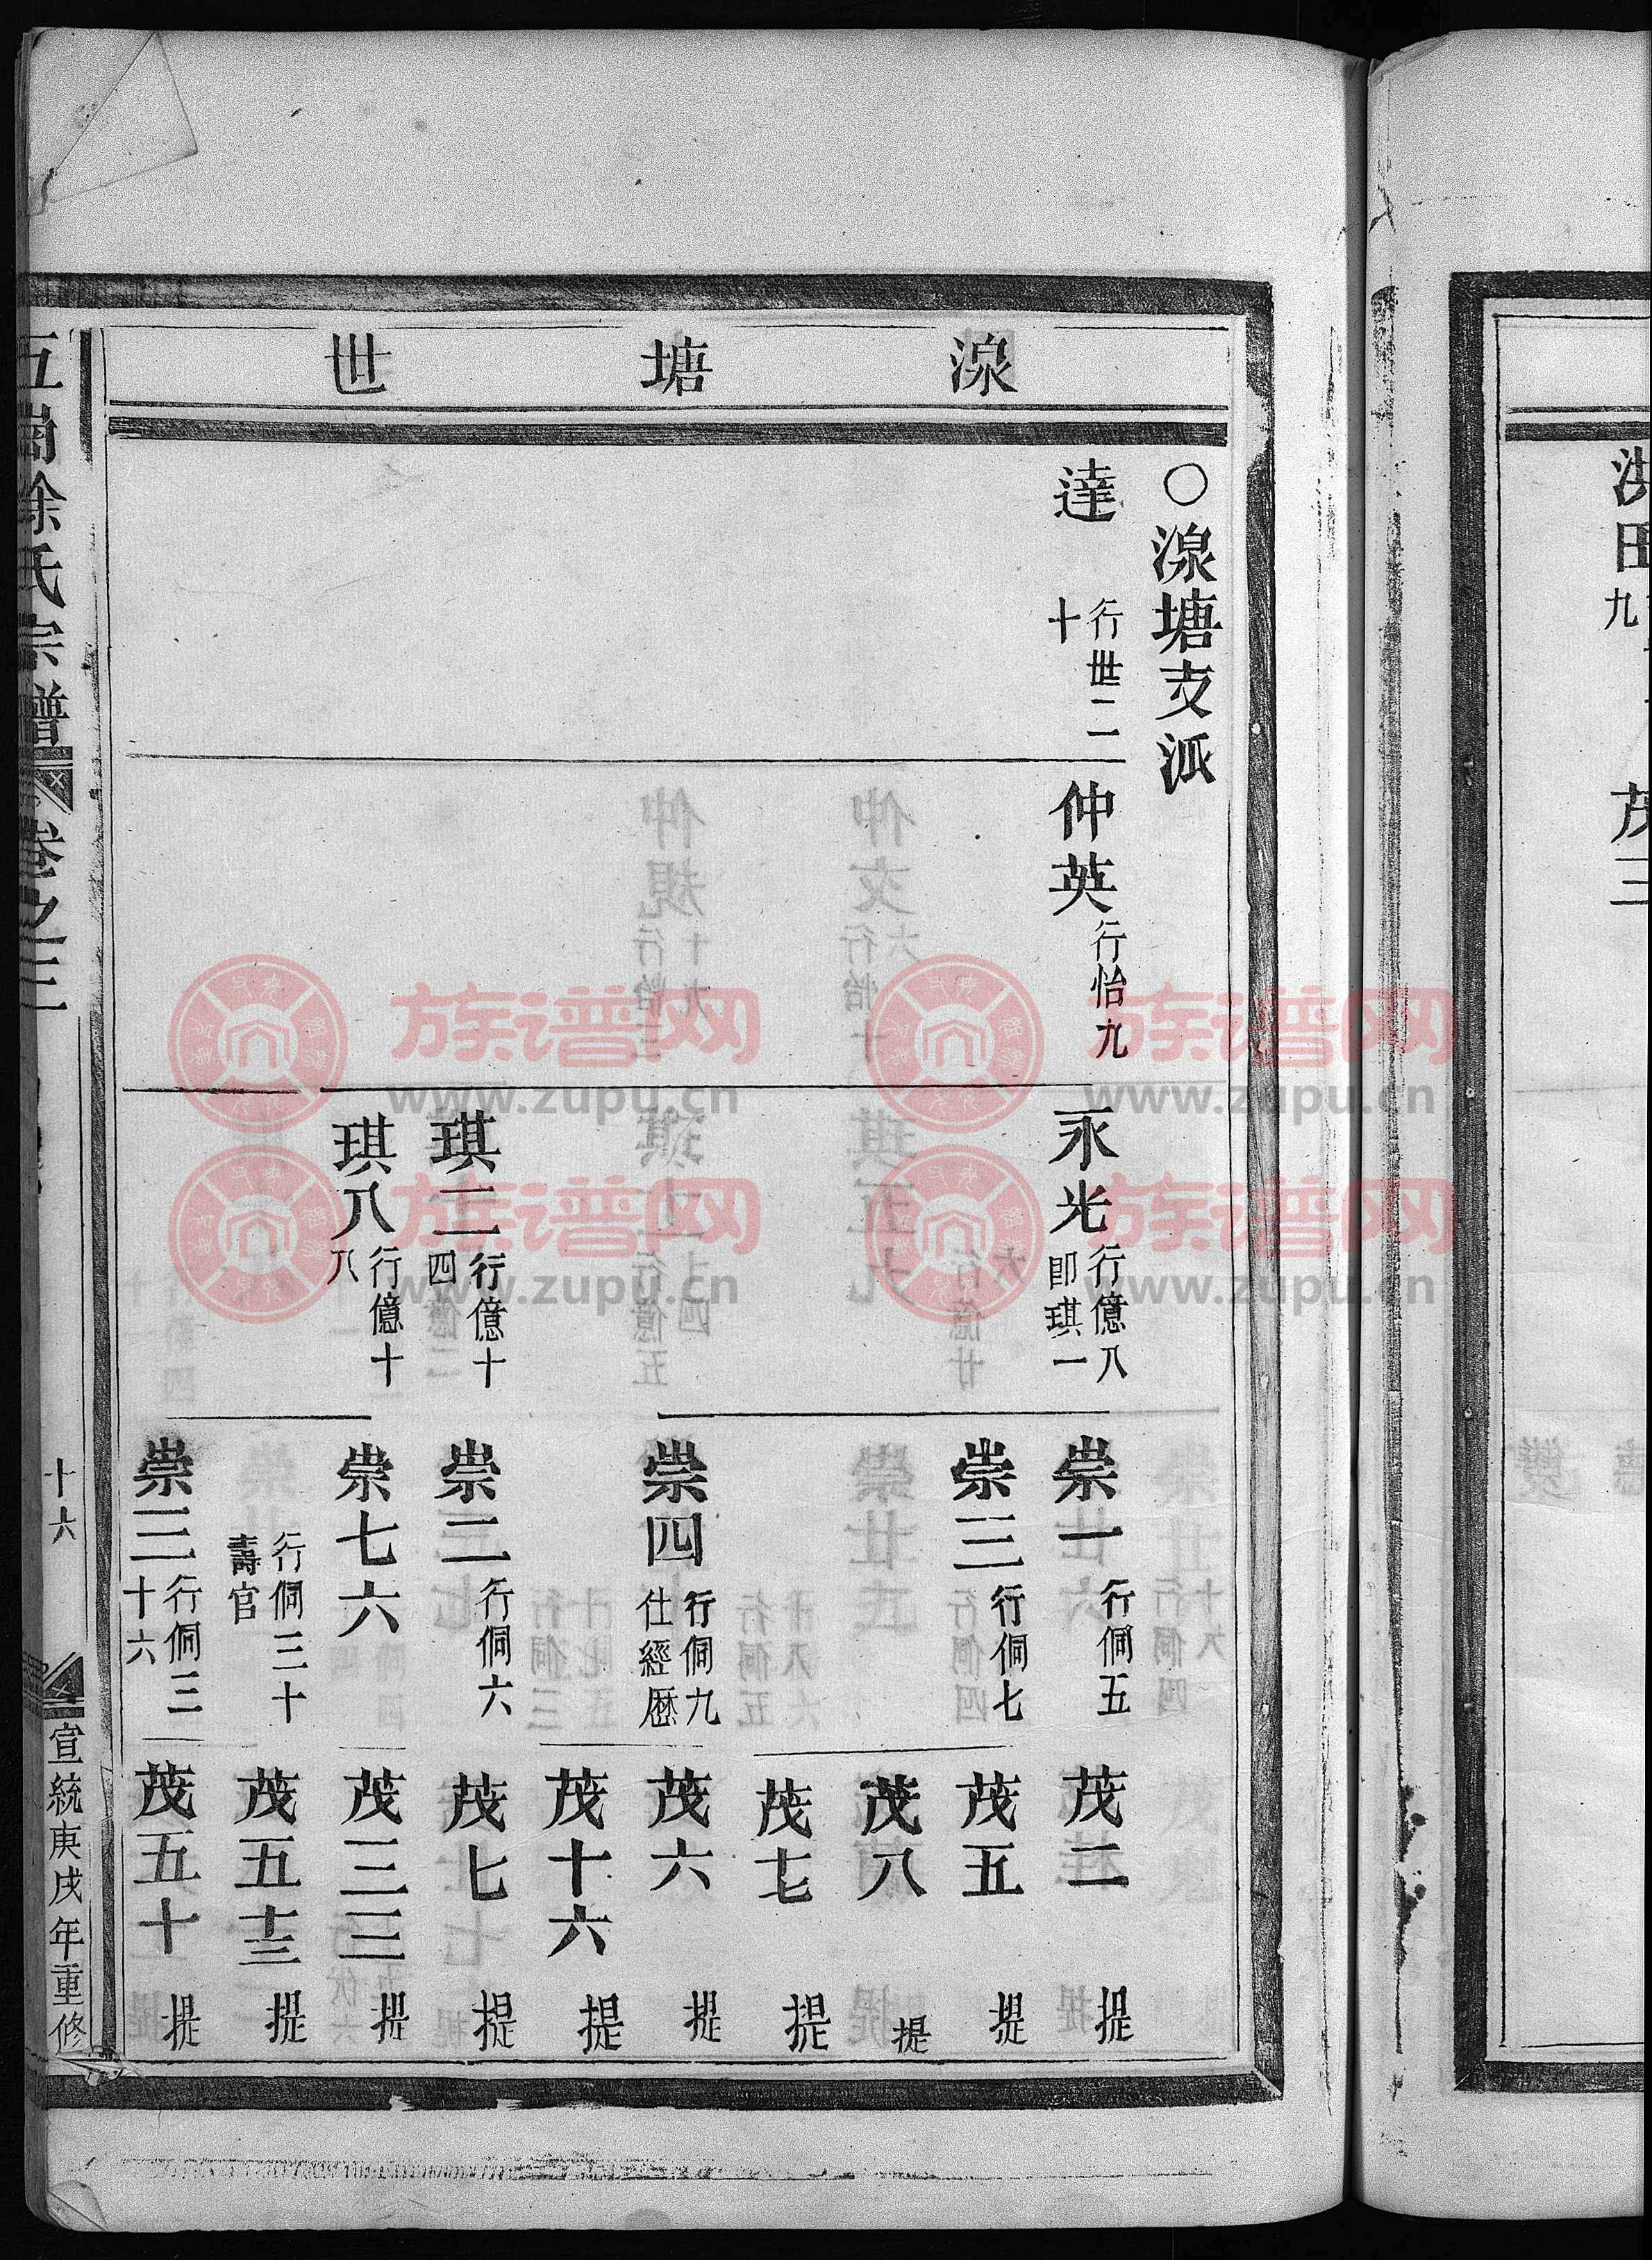 湶塘世
○湶塘支派
達 行世二十
仲英 行怡九
永光 行億八 即琪一
琪二 行億十四
琪八 行億十八
崇一 行侗五
崇三 行侗七
崇四 行侗九 仕經歷
崇二 行侗六
崇七六
行侗三十 壽官
崇三 行侗三十六
茂二 提
茂五 提
茂八 提
茂七 提
茂六 提
茂十六 提
茂七 提
茂三三 提
茂五十三 提
茂五十 提
氏宗譜 卷之三
十六
宣統庚戌年重修
洪田
九
茂三
族谱网 www.zupu.cn
族谱网 www.zupu.cn
族谱网 www.zupu.cn
族谱网 www.zupu.cn